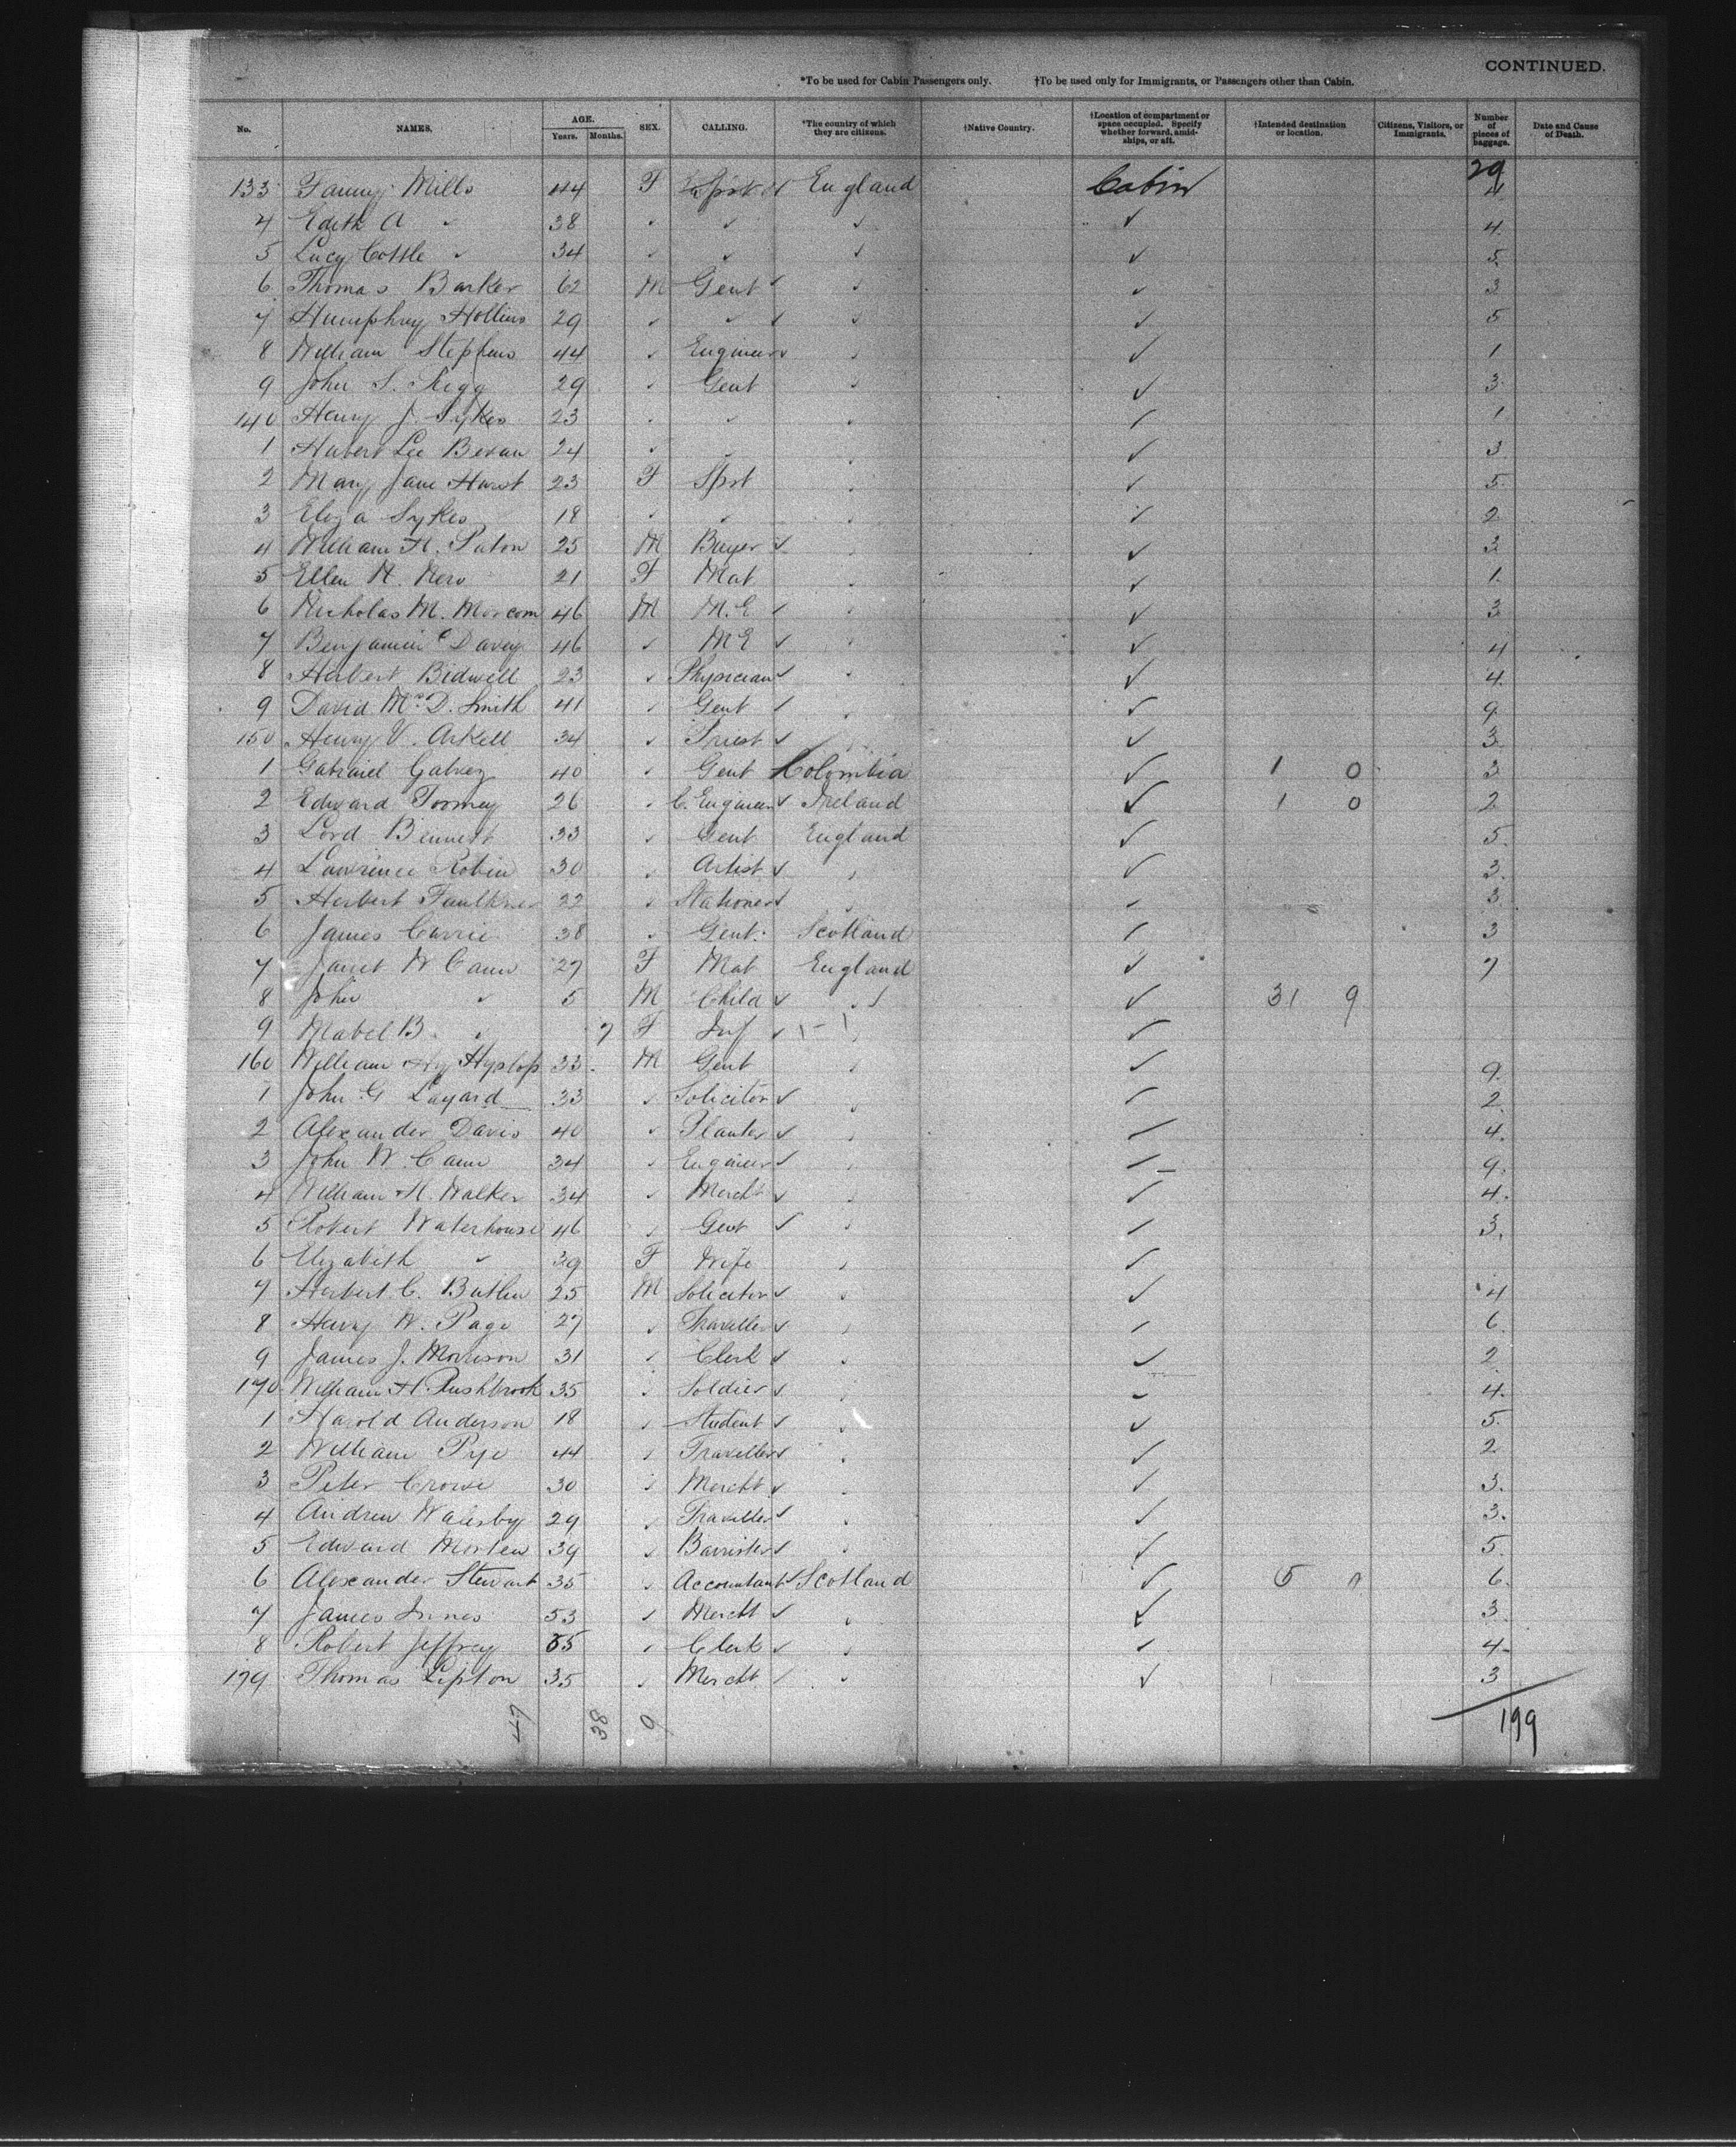 CONTINUED.
*To be used for Cabin Passengers only. †To be used only for Immigrants, or Passengers other than Cabin.
No. NAMES. AGE. Years. Months. SEX. CALLING. *The country of which they are citizens. †Native Country. †Location of compartment or space occupied. Specify whether forward, amidships, or aft. †Intended destination or location. Citizens, Visitors, or Immigrants. Number of pieces of baggage. Date and Cause of Death.
29
133 Fanny Mills 44 F Spst England Cabin 4
4 Edith A " 38 " " " ✓ 4
5 Lucy Cottle " 34 " " " ✓ 5
6 Thomas Barker 62 M Gent " ✓ 3
7 Humphrey Hollins 29 " " " ✓ 5
8 William Stephens 44 " Engineer " ✓ 1
9 John S. Rigg 29 " Gent " ✓ 3
140 Henry J. Sykes 23 " " " ✓ 1
1 Hubert Lee Bevan 24 " " " ✓ 3
2 Mary Jane Hurst 23 F Spst " ✓ 5
3 Eliza Sykes 18 " " " ✓ 2
4 William H. Paton 25 M Buyer " ✓ 3
5 Ellen N. New 21 F Mat " ✓ 1
6 Nicholas M. Morcom 46 M M.E " ✓ 3
7 Benjamin C Davey 46 " M E " ✓ 4
8 Herbert Bidwell 23 " Physician " ✓ 4
9 David McD. Smith 41 " Gent " ✓ 9
150 Henry V. Arkell 34 " Priest " ✓ 3
1 Gabriel Galvez 40 " Gent Colombia ✓ 1 0 3
2 Edward Toomey 26 " C. Engineer Ireland ✓ 1 0 2
3 Lord Bennett 33 " Gent England ✓ 5
4 Lawrence Robin 30 " Artist " ✓ 3
5 Herbert Faulkner 22 " Stationer " ✓ 3
6 James Currie 38 " Gent Scotland ✓ 3
7 Janet W Cann 27 F Mat England ✓ 7
8 John " 5 M Child " ✓ 31 9
9 Mabel B. " 7 F Inf " ✓
160 William Hy Hyslop 33 M Gent " ✓ 9
1 John G Layard 33 " Solicitor " ✓ 2
2 Alexander Davis 40 " Planter " ✓ 4
3 John W. Cann 34 " Engineer " ✓ 9
4 William H. Walker 34 " Mercht " ✓ 4
5 Robert Waterhouse 46 " Gent " ✓ 3
6 Elizabeth " 39 F Wife " ✓
7 Herbert C. Butlin 25 M Solicitor " ✓ 4
8 Harry W. Page 27 " Traveller " ✓ 6
9 James J. Morrison 31 " Clerk " ✓ 2
170 William H. Rushbrook 35 " Soldier " ✓ 4
1 Harold Anderson 18 " Student " ✓ 5
2 William Pye 44 " Traveller " ✓ 2
3 Peter Crowe 30 " Mercht " ✓ 3
4 Andrew Walesby 29 " Traveller " ✓ 3
5 Edward Morten 39 " Barrister " ✓ 5
6 Alexander Stewart 35 " Accountant Scotland ✓ 5 6
7 James Innes 53 " Mercht " ✓ 3
8 Robert Jeffrey 55 " Clerk " ✓ 4
179 Thomas Lipton 35 " Mercht " ✓ 3
47 38 9 199